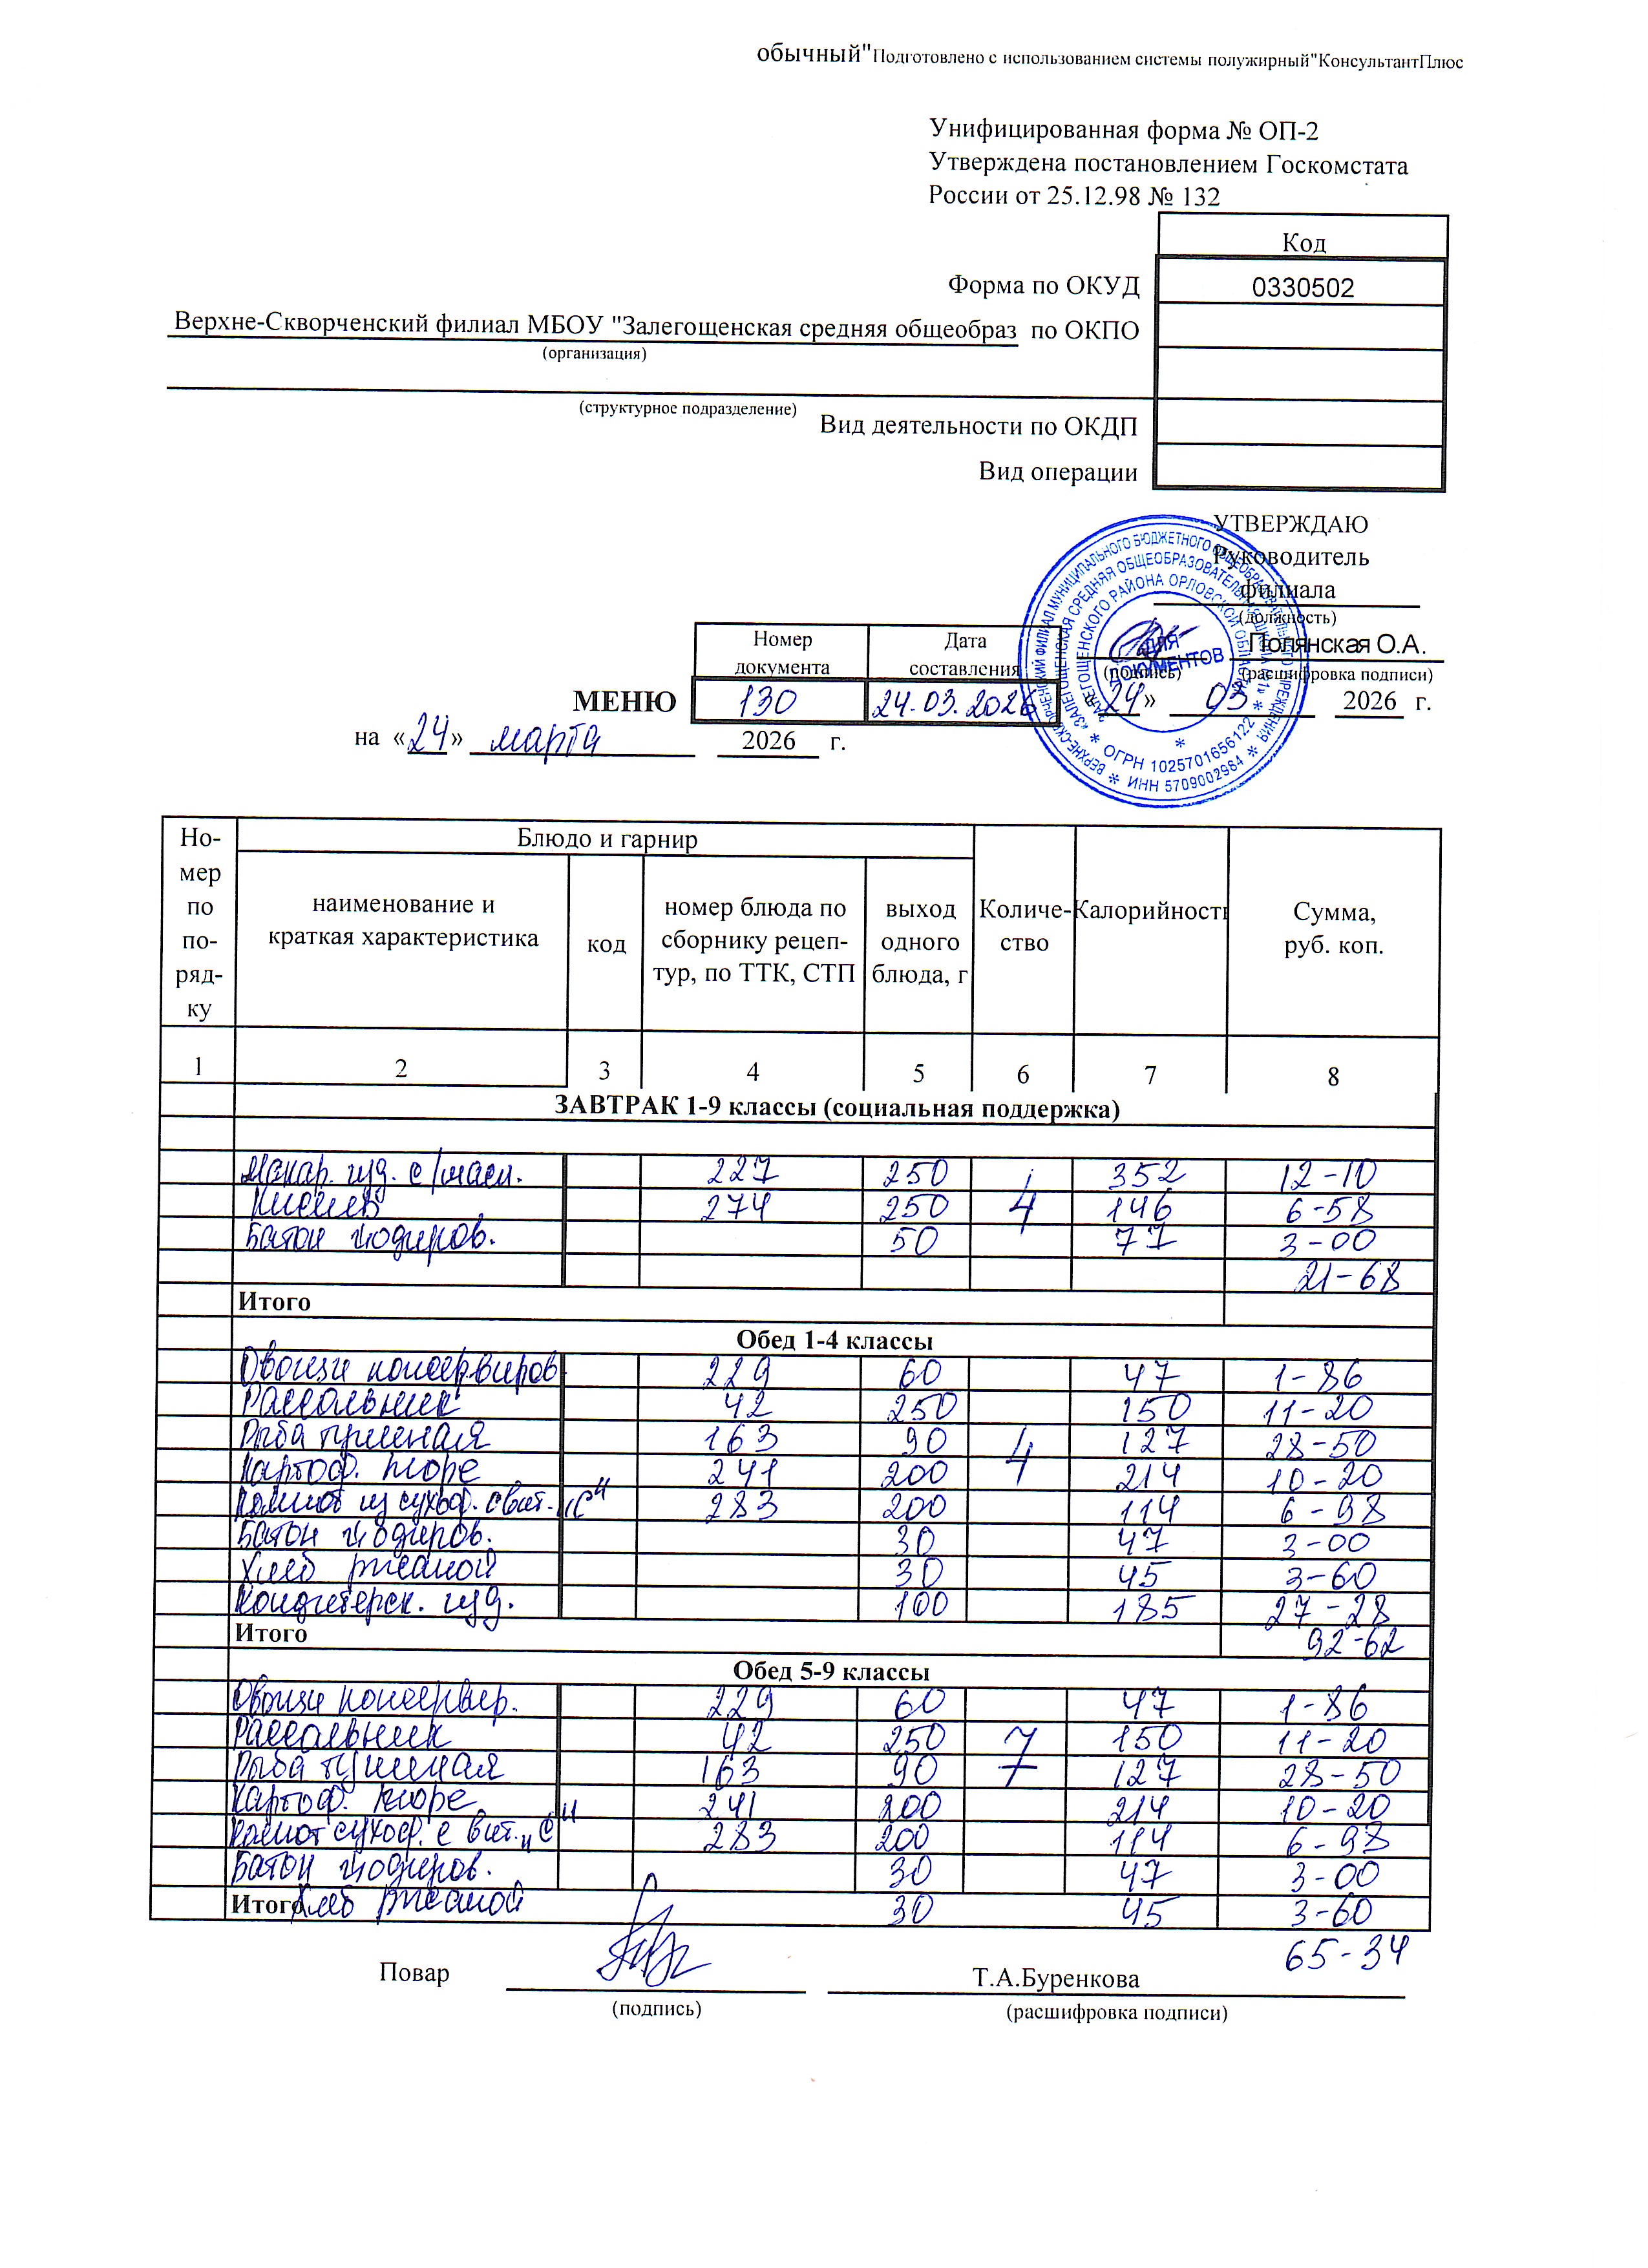 обычный"Подготовлено с использованием системы полужирный"КонсультантПлюс
Унифицированная форма № ОП-2
Утверждена постановлением Госкомстата
России от 25.12.98 № 132
Код
Форма по ОКУД 0330502
Верхне-Скворченский филиал МБОУ "Залегощенская средняя общеобраз по ОКПО
(организация)
(структурное подразделение)
Вид деятельности по ОКДП
Вид операции
УТВЕРЖДАЮ
Руководитель
филиала
(должность)
Полянская О.А.
(подпись) (расшифровка подписи)
«24» 03 2026 г.
ДЛЯ ДОКУМЕНТОВ
ОГРН 1025701656122
ИНН 5709002984
Номер документа Дата составления
МЕНЮ 130 24.03.2026
на «24» марта 2026 г.
Но-мер по по-ряд-ку Блюдо и гарнир Количе-ство Калорийность Сумма, руб. коп.
наименование и краткая характеристика код номер блюда по сборнику рецеп-тур, по ТТК, СТП выход одного блюда, г
1 2 3 4 5 6 7 8
ЗАВТРАК 1-9 классы (социальная поддержка)
Макар. изд. с/масл. 227 250 352 12-10
Кисель 274 250 4 146 6-58
Батон йодиров. 50 77 3-00
21-68
Итого
Обед 1-4 классы
Овощи консервиров. 229 60 47 1-86
Рассольник 42 250 150 11-20
Рыба припущенная 163 90 4 127 28-50
Картоф. пюре 241 200 214 10-20
Компот из сухоф. с вит. "С" 283 200 114 6-98
Батон йодиров. 30 47 3-00
Хлеб ржаной 30 45 3-60
Кондитерск. изд. 100 185 27-28
Итого 92-62
Обед 5-9 классы
Овощи консервир. 229 60 47 1-86
Рассольник 42 250 7 150 11-20
Рыба 163 90 127 28-50
Картоф. пюре 241 200 214 10-20
Компот сухоф. с вит. "С" 283 200 114 6-98
Батон йодиров. 30 47 3-00
Итого Хлеб ржаной 30 45 3-60
65-34
Повар Т.А.Буренкова
(подпись) (расшифровка подписи)